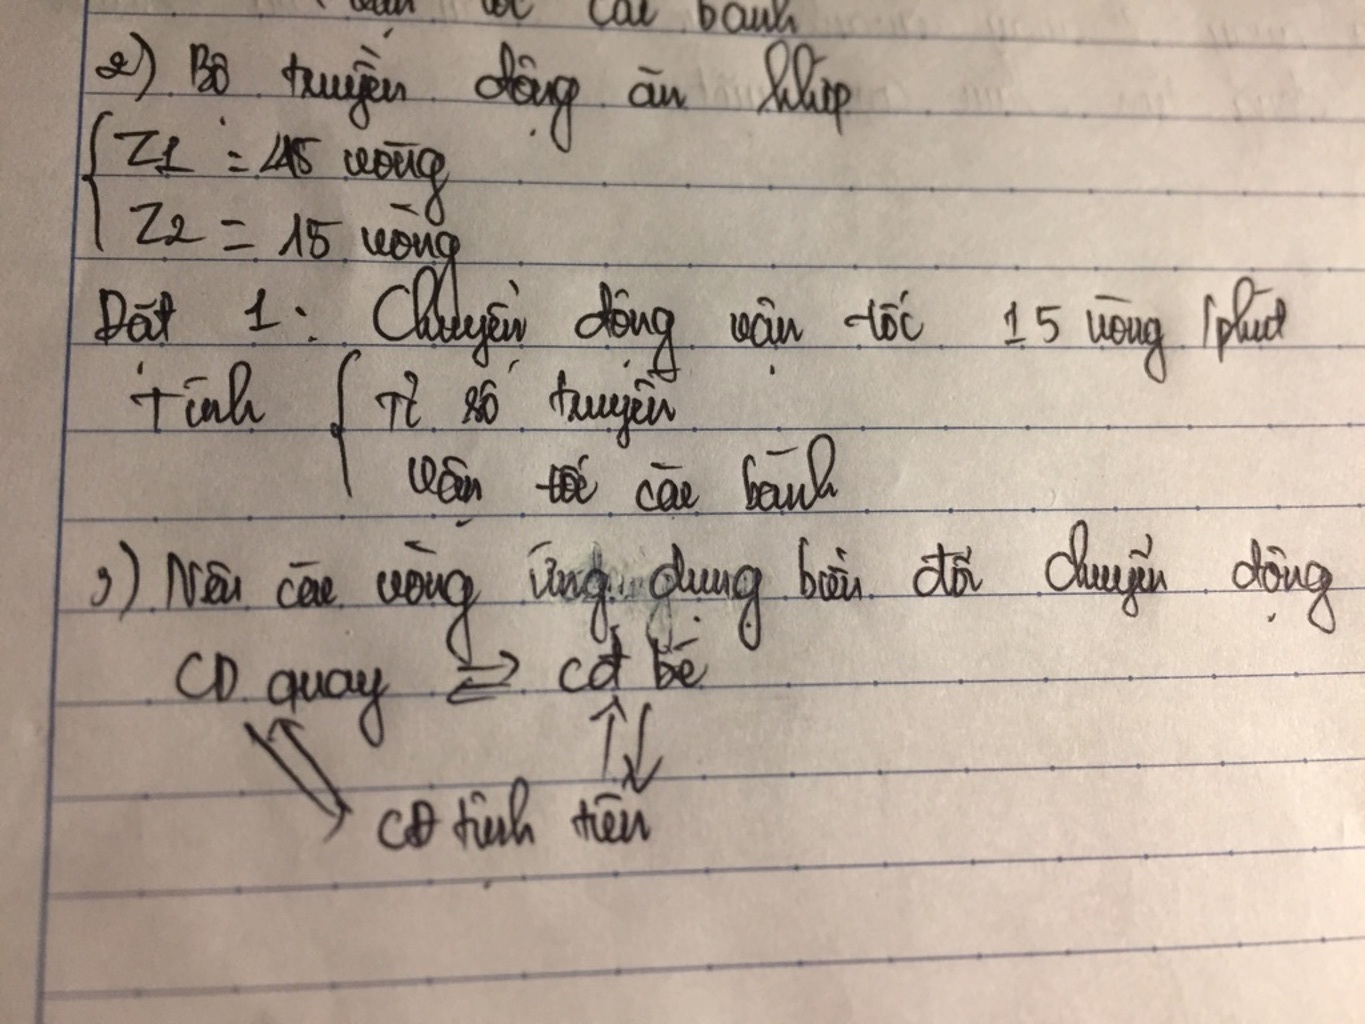 vận tốc các bánh
2) Bộ truyền động ăn khớp
Z1 = 45 vòng
Z2 = 15 vòng
Đất 1: Chuyển động vận tốc 15 vòng / phút
Tính Tỉ số truyền
vận tốc các bánh
3) Nêu các vòng ứng dụng biến đổi chuyển động
CD quay ⇌ cđ bé
CĐ tịnh tiến